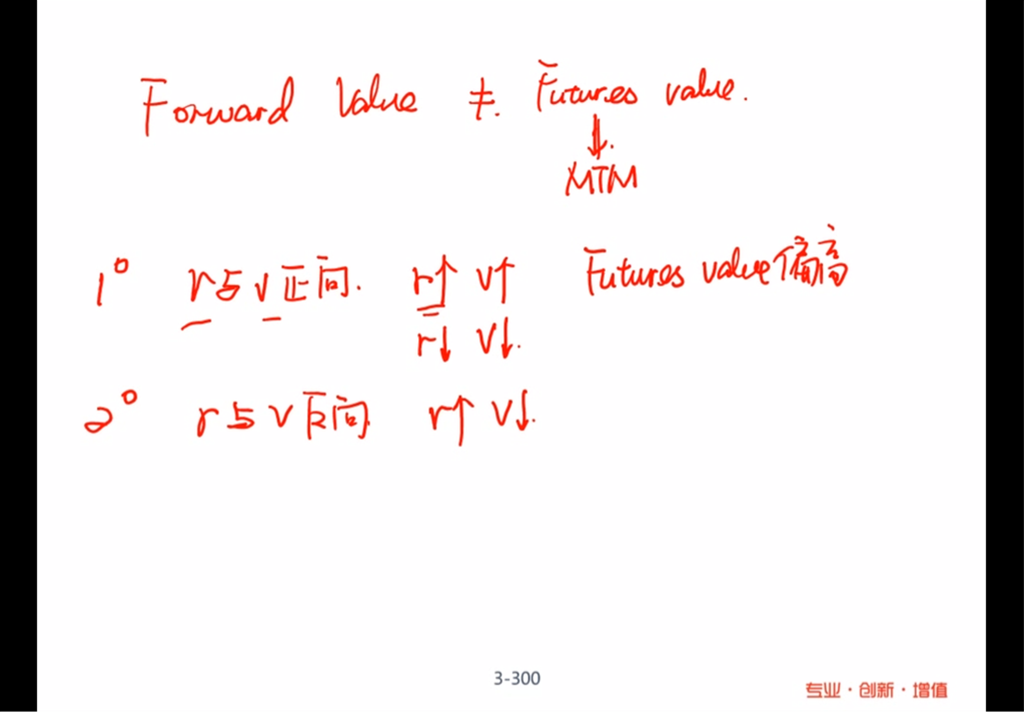 Forward Value ≠. Futures value.
↓.
MTM
1° r与v正向. r↑ v↑ Futures value偏高
r↓ v↓.
2° r与v反向. r↑ v↓.
3-300
专业·创新·增值